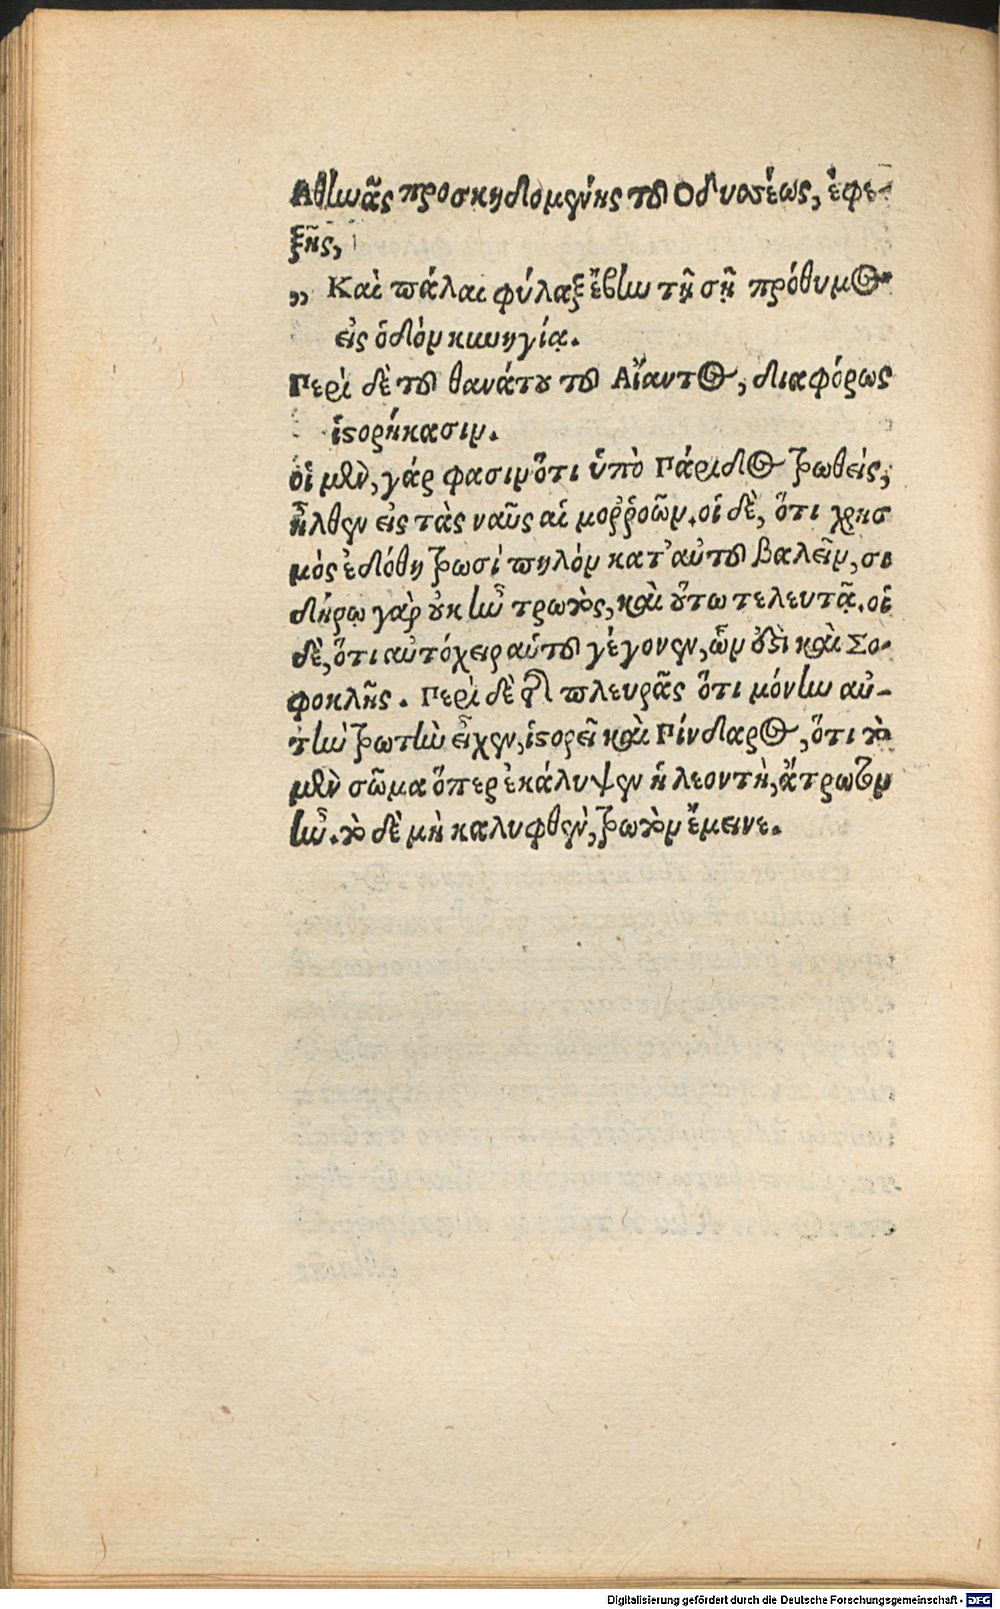 Αθηνᾶς προσκηδομένης τοῦ Οδυσσέως, ἐφε-
ξῆς,
„ Καὶ πάλαι φύλαξ ἔβην τῇ σῇ πρόθυμος
εἰς ὁδὸν κυνηγίᾳ.
Περὶ δὲ τοῦ θανάτου τοῦ Αἴαντος, διαφόρως
ἱστορήκασιν.
οἱ μὲν, γάρ φασιν ὅτι ὑπὸ Πάριδος τρωθείς,
ἦλθεν εἰς τὰς ναῦς αἱμορῤῥοῶν. οἱ δὲ, ὅτι χρησ
μὸς ἐδόθη τρωσὶ πηλὸν κατ' αὐτοῦ βαλεῖν, σι
δήρῳ γὰρ οὐκ ἦν τρωτός, καὶ οὕτω τελευτᾷ. οἱ
δὲ, ὅτι αὐτόχειρ αὑτοῦ γέγονεν, ὧν ἐστι καὶ Σο-
φοκλῆς. Περὶ δὲ τῆς πλευρᾶς ὅτι μόνην αὐ-
τὴν τρωτὴν εἶχεν, ἱστορεῖ καὶ Πίνδαρος, ὅτι τὸ
μὲν σῶμα ὅπερ ἐκάλυψεν ἡ λεοντὴ, ἄτρωτον
ἦν. τὸ δὲ μὴ καλυφθὲν, τρωτὸν ἔμεινε.
Digitalisierung gefördert durch die Deutsche Forschungsgemeinschaft - DFG